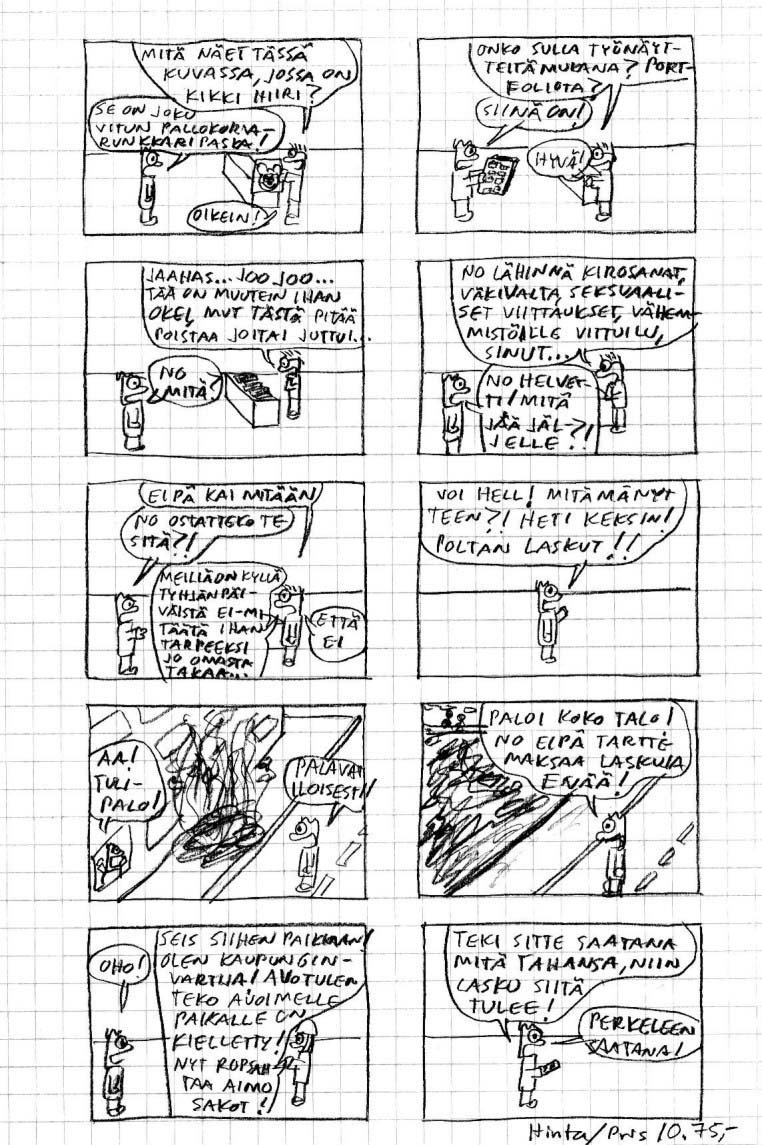 MITÄ NÄET TÄSSÄ
KUVASSA, JOSSA ON
KIKKI HIIRI?
SE ON JOKU
VITUN PALLOKORVA-
RUNKKARIPASKA!
OIKEIN!
ONKO SULLA TYÖNÄYT-
TEITÄ MUKANA? PORT-
FOLIOTA?
SIINÄ ON!
HYVÄ!
JAAHAS... JOO JOO...
TÄÄ ON MUUTEIN IHAN
OKEI, MUT TÄSTÄ PITÄÄ
POISTAA JOITAI JUTTUI...
NO
MITÄ?
NO LÄHINNÄ KIROSANAT,
VÄKIVALTA, SEKSUAALI-
SET VIITTAUKSET, VÄHEM-
MISTÖILLE VITTUILU,
SINUT...
NO HELVE-
TI! MITÄ
JÄÄ JÄL-
JELLE?!
EIPÄ KAI MITÄÄN
NO OSTATTEKO TE
SITÄ?!
MEILLÄ ON KYLLÄ
TYHJÄNPÄI-
VÄISTÄ EI-MI-
TÄÄTÄ IHAN
TARPEEKSI
JO OMASTA
TAKAA...
ETTÄ
EI
VOI HELL! MITÄ MÄ NYT
TEEN?! HETI KEKSIN!
POLTAN LASKUT!!
AA!
TULI-
PALO!
PALAVAT
ILOISESTI!
PALOI KOKO TALO!
NO EIPÄ TARTTE
MAKSAA LASKUJA
ENÄÄ!
OHO!
SEIS SIIHEN PAIKKAAN!
OLEN KAUPUNGIN-
VARTIJA! AVOTULEN
TEKO AVOIMELLE
PAIKALLE ON
KIELLETTY!
NYT ROPSAH-
TAA AIMO
SAKOT!
TEKI SITTE SAATANA
MITÄ TAHANSA, NIIN
LASKU SIITÄ
TULEE!
PERKELEEN
SAATANA!
Hinta/Pris 10.75,-